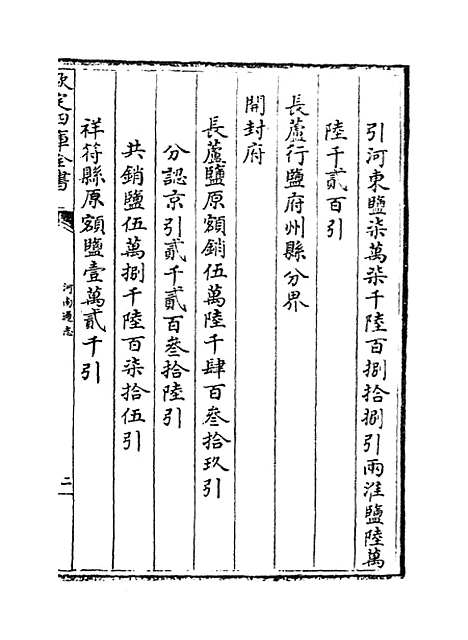 引河東鹽柒萬柒千陸百捌拾捌引兩淮鹽陸萬
陸千貳百引
長蘆行鹽府州縣分界
開封府
長蘆鹽原額銷伍萬陸千肆百叁拾玖引
分認京引貳千貳百叁拾陸引
共銷鹽伍萬捌千陸百柒拾伍引
祥符縣原額鹽壹萬貳千引
欽定四庫全書
河南通志
二